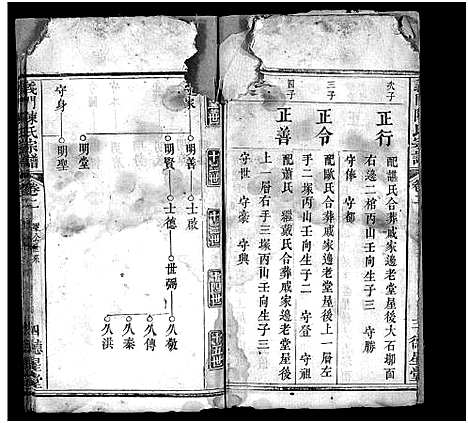 次子
正行
配諶氏合葬戚家邊老堂屋後大石塝面
右邊二棺丙山壬向生子三 守勝
守俸 守都
三子
正令
配歐氏合葬戚家邊老堂屋後上一層左
手二塚丙山壬向生子二 守登 守祖
四子
正善
配蕭氏 繼戴氏合葬戚家邊老堂屋後
上一層右手三塚丙山壬向生子三
守世 守豪 守興
十二世
十三世
十四世
十五世
明善
士啟
明賢
士德
世弼
久敬
久傳
久秦
久洪
守身
明堂
明聖
義門陳氏宗譜
卷二
四
德星堂